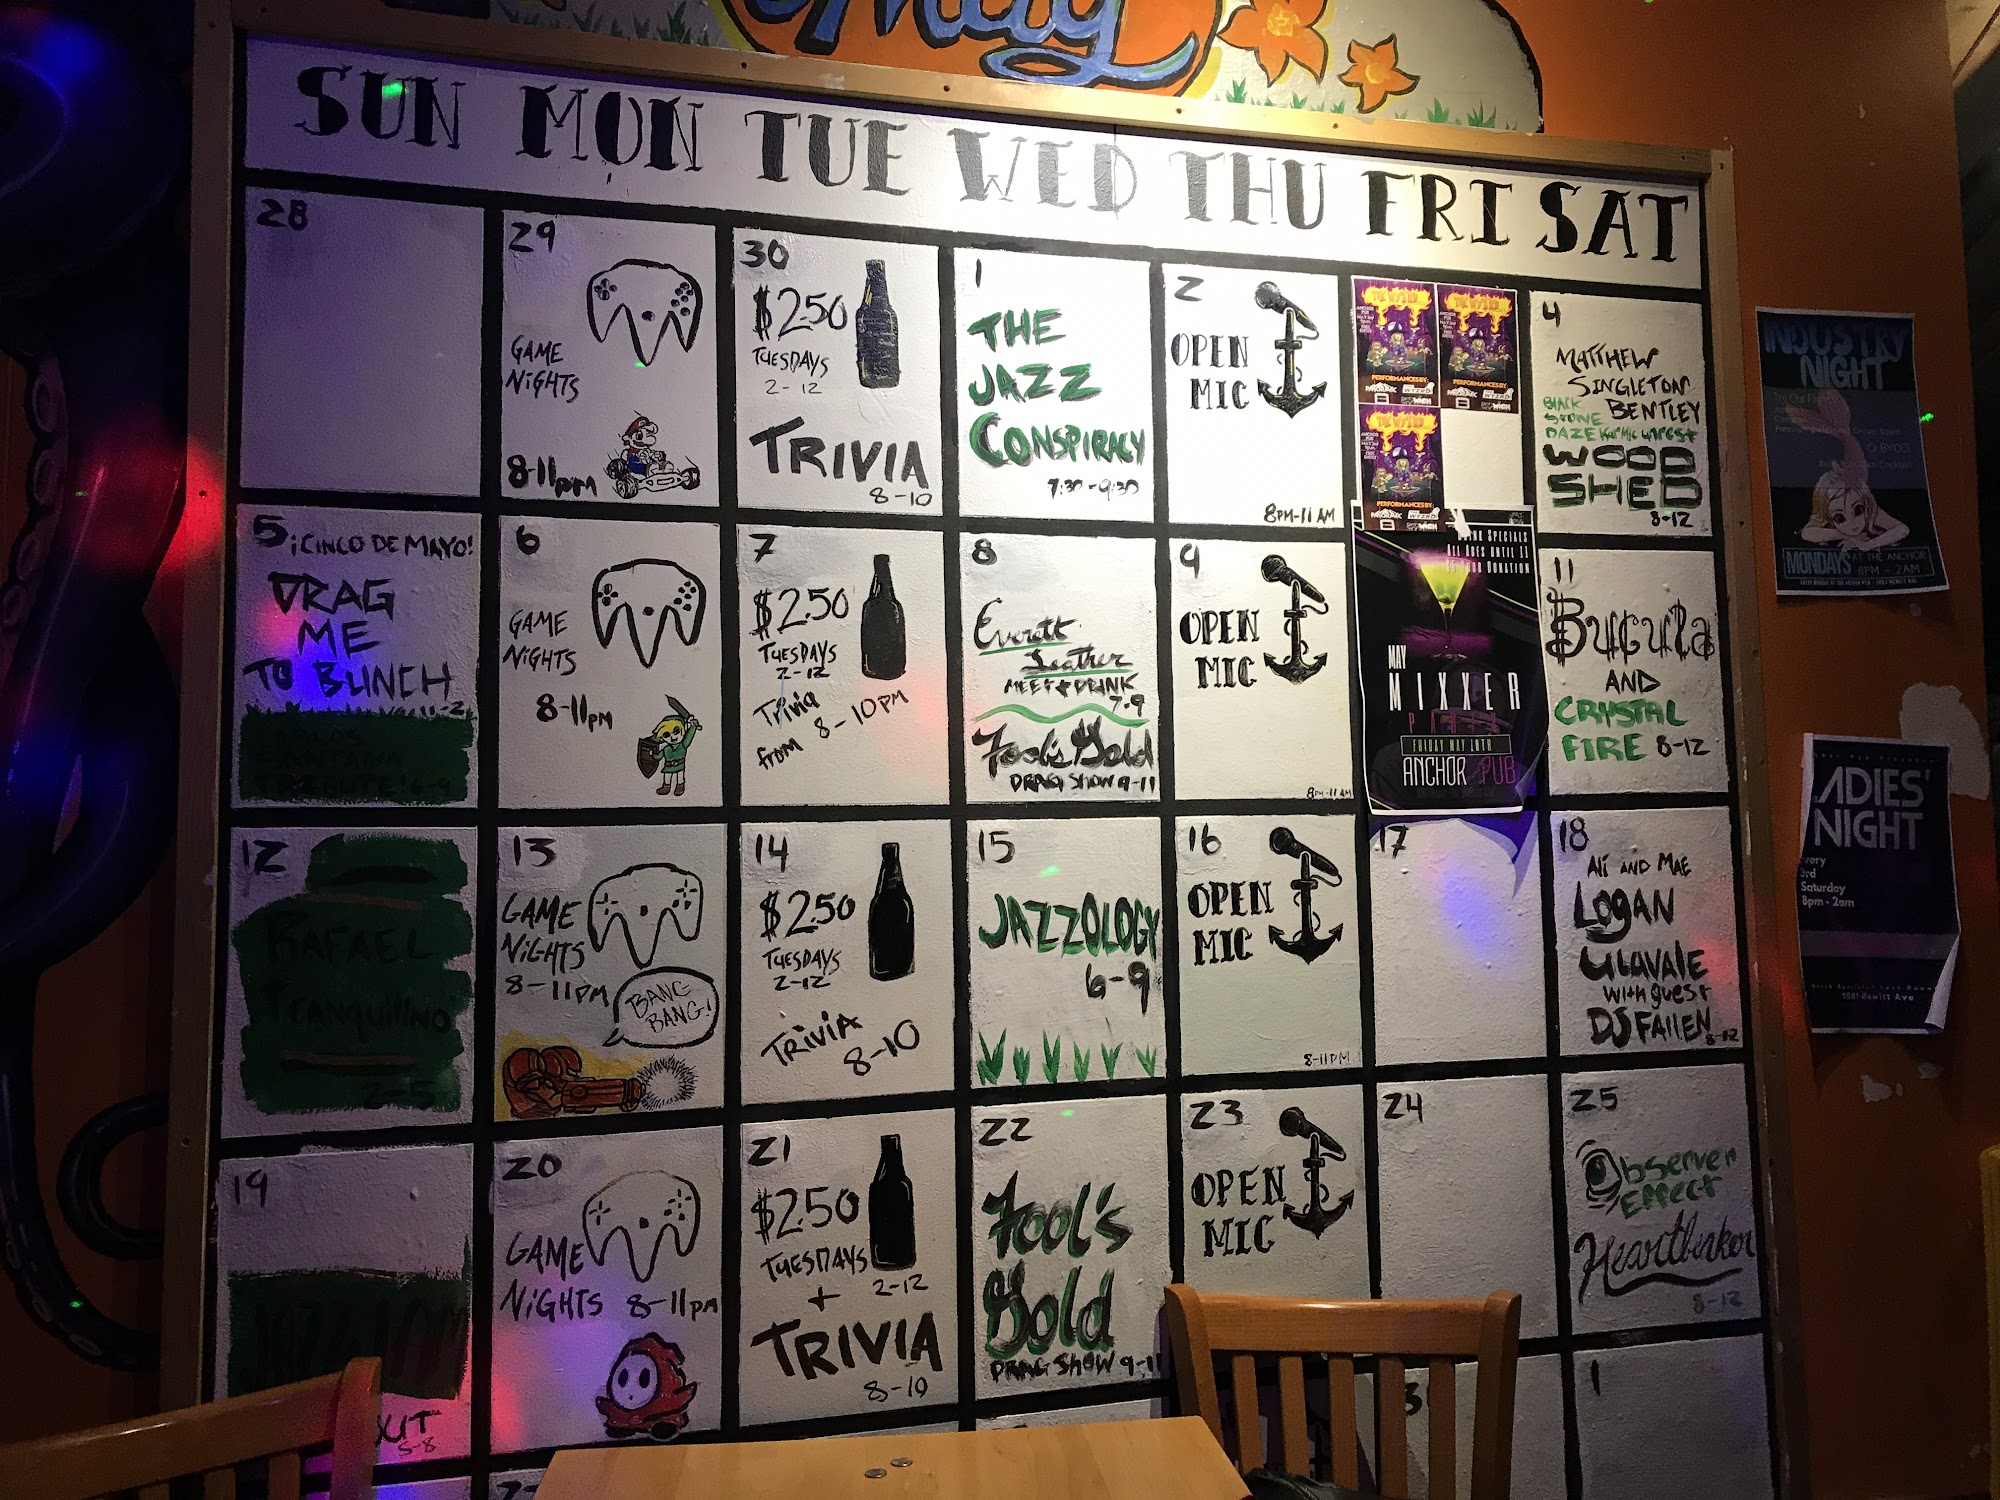 May
SUN MON TUE WED THU FRI SAT
28
29
GAME
NiGHTS
8-11pm
30
$2.50
TUESDAYS
2-12
TRIVIA
8-10
1
THE
JAZZ
CONSPIRACY
7:30-9:30
2
OPEN
MIC
8PM-11AM
PERFORMANCES BY
PERFORMANCES BY
PERFORMANCES BY
4
MATTHEW
SINGLETON
BENTLEY
BLACK
STONE
DAZE KARMIC UNREST
WOOD
SHED
8-12
5 ¡CINCO DE MAYO!
DRAG
ME
TO BLINCH
11-2
TRIBUTE! 6-9
6
GAME
NiGHTS
8-11PM
7
$2.50
TUESDAYS
2-12
Trivia
from 8-10PM
8
Everett
Leather
MEET & DRINK
7-9
Fool's Gold
DRAG SHOW 9-11
9
OPEN
MIC
8PM-11AM
All Ages until 11
MAY
MIXXER
PARTY
FRIDAY MAY 10TH
ANCHOR PUB
11
Bugula
AND
CRYSTAL
FIRE 8-12
12
RAFAEL
Tranquilino
2-5
13
GAME
NiGHTS
8-11PM
BANG
BANG!
14
$2.50
TUESDAYS
2-12
TRiViA
8-10
15
JAZZOLOGY
6-9
16
OPEN
MIC
8-11PM
17
18
Ali AND MAE
LOGAN
ULAVALE
with guest
DJ FALLEN
8-12
19
JAZZ JAM
5-8
20
GAME
NiGHTS 8-11PM
21
$2.50
TUESDAYS
2-12
+
TRIVIA
8-10
22
Fool's
Gold
DRAG SHOW 9-11
23
OPEN
MIC
24
25
Observer
Effect
Heartbreaker
8-12
1
INDUSTRY
NIGHT
MONDAYS AT THE ANCHOR
8PM - 2AM
LADIES'
NIGHT
Every
3rd
Saturday
8pm - 2am
1001 Hewitt Ave